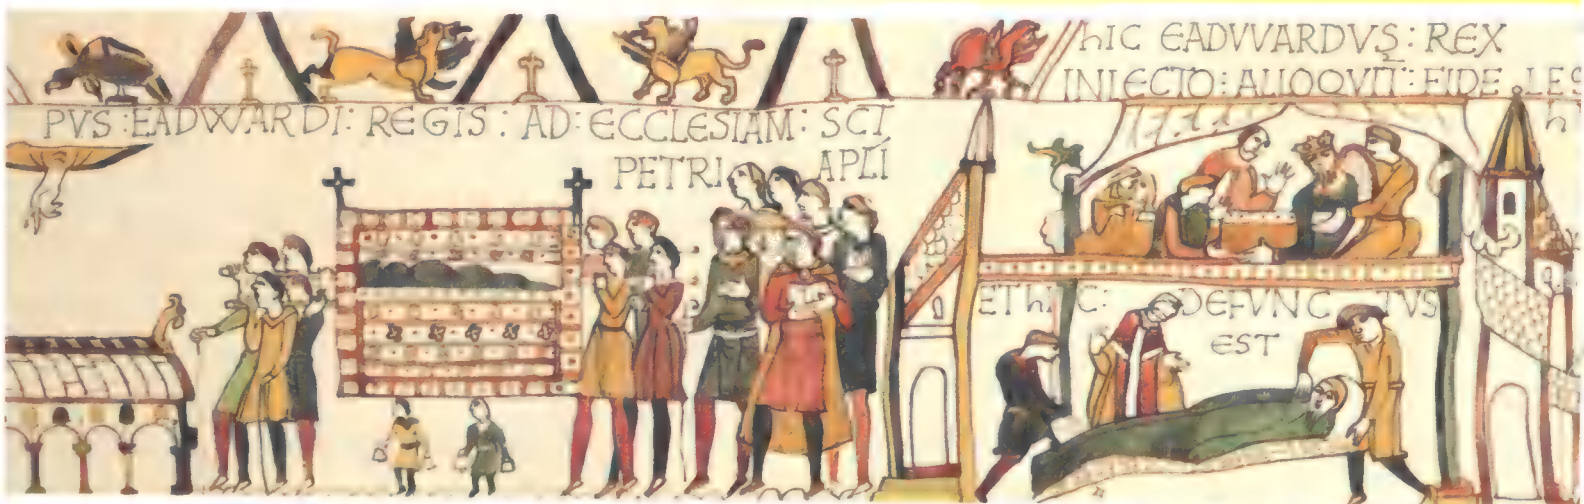 PVS : EADWARDI : REGIS : AD : ECCLESIAM : SCI
PETRI APLI
hIC EADVVARDVS : REX
INLECTO : ALLOQVIT : FIDELES
ET hIC : DEFVNCTVS
EST